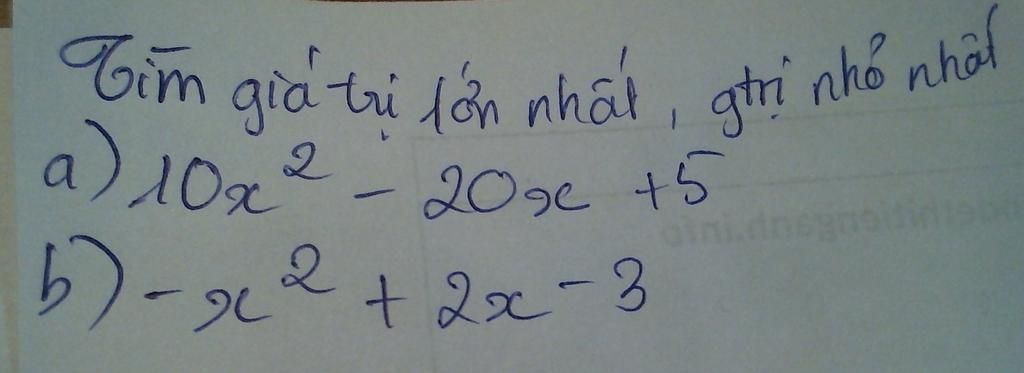 Tìm giá trị lớn nhất, gtrị nhỏ nhất
a) 10x² - 20x + 5
b) -x² + 2x - 3